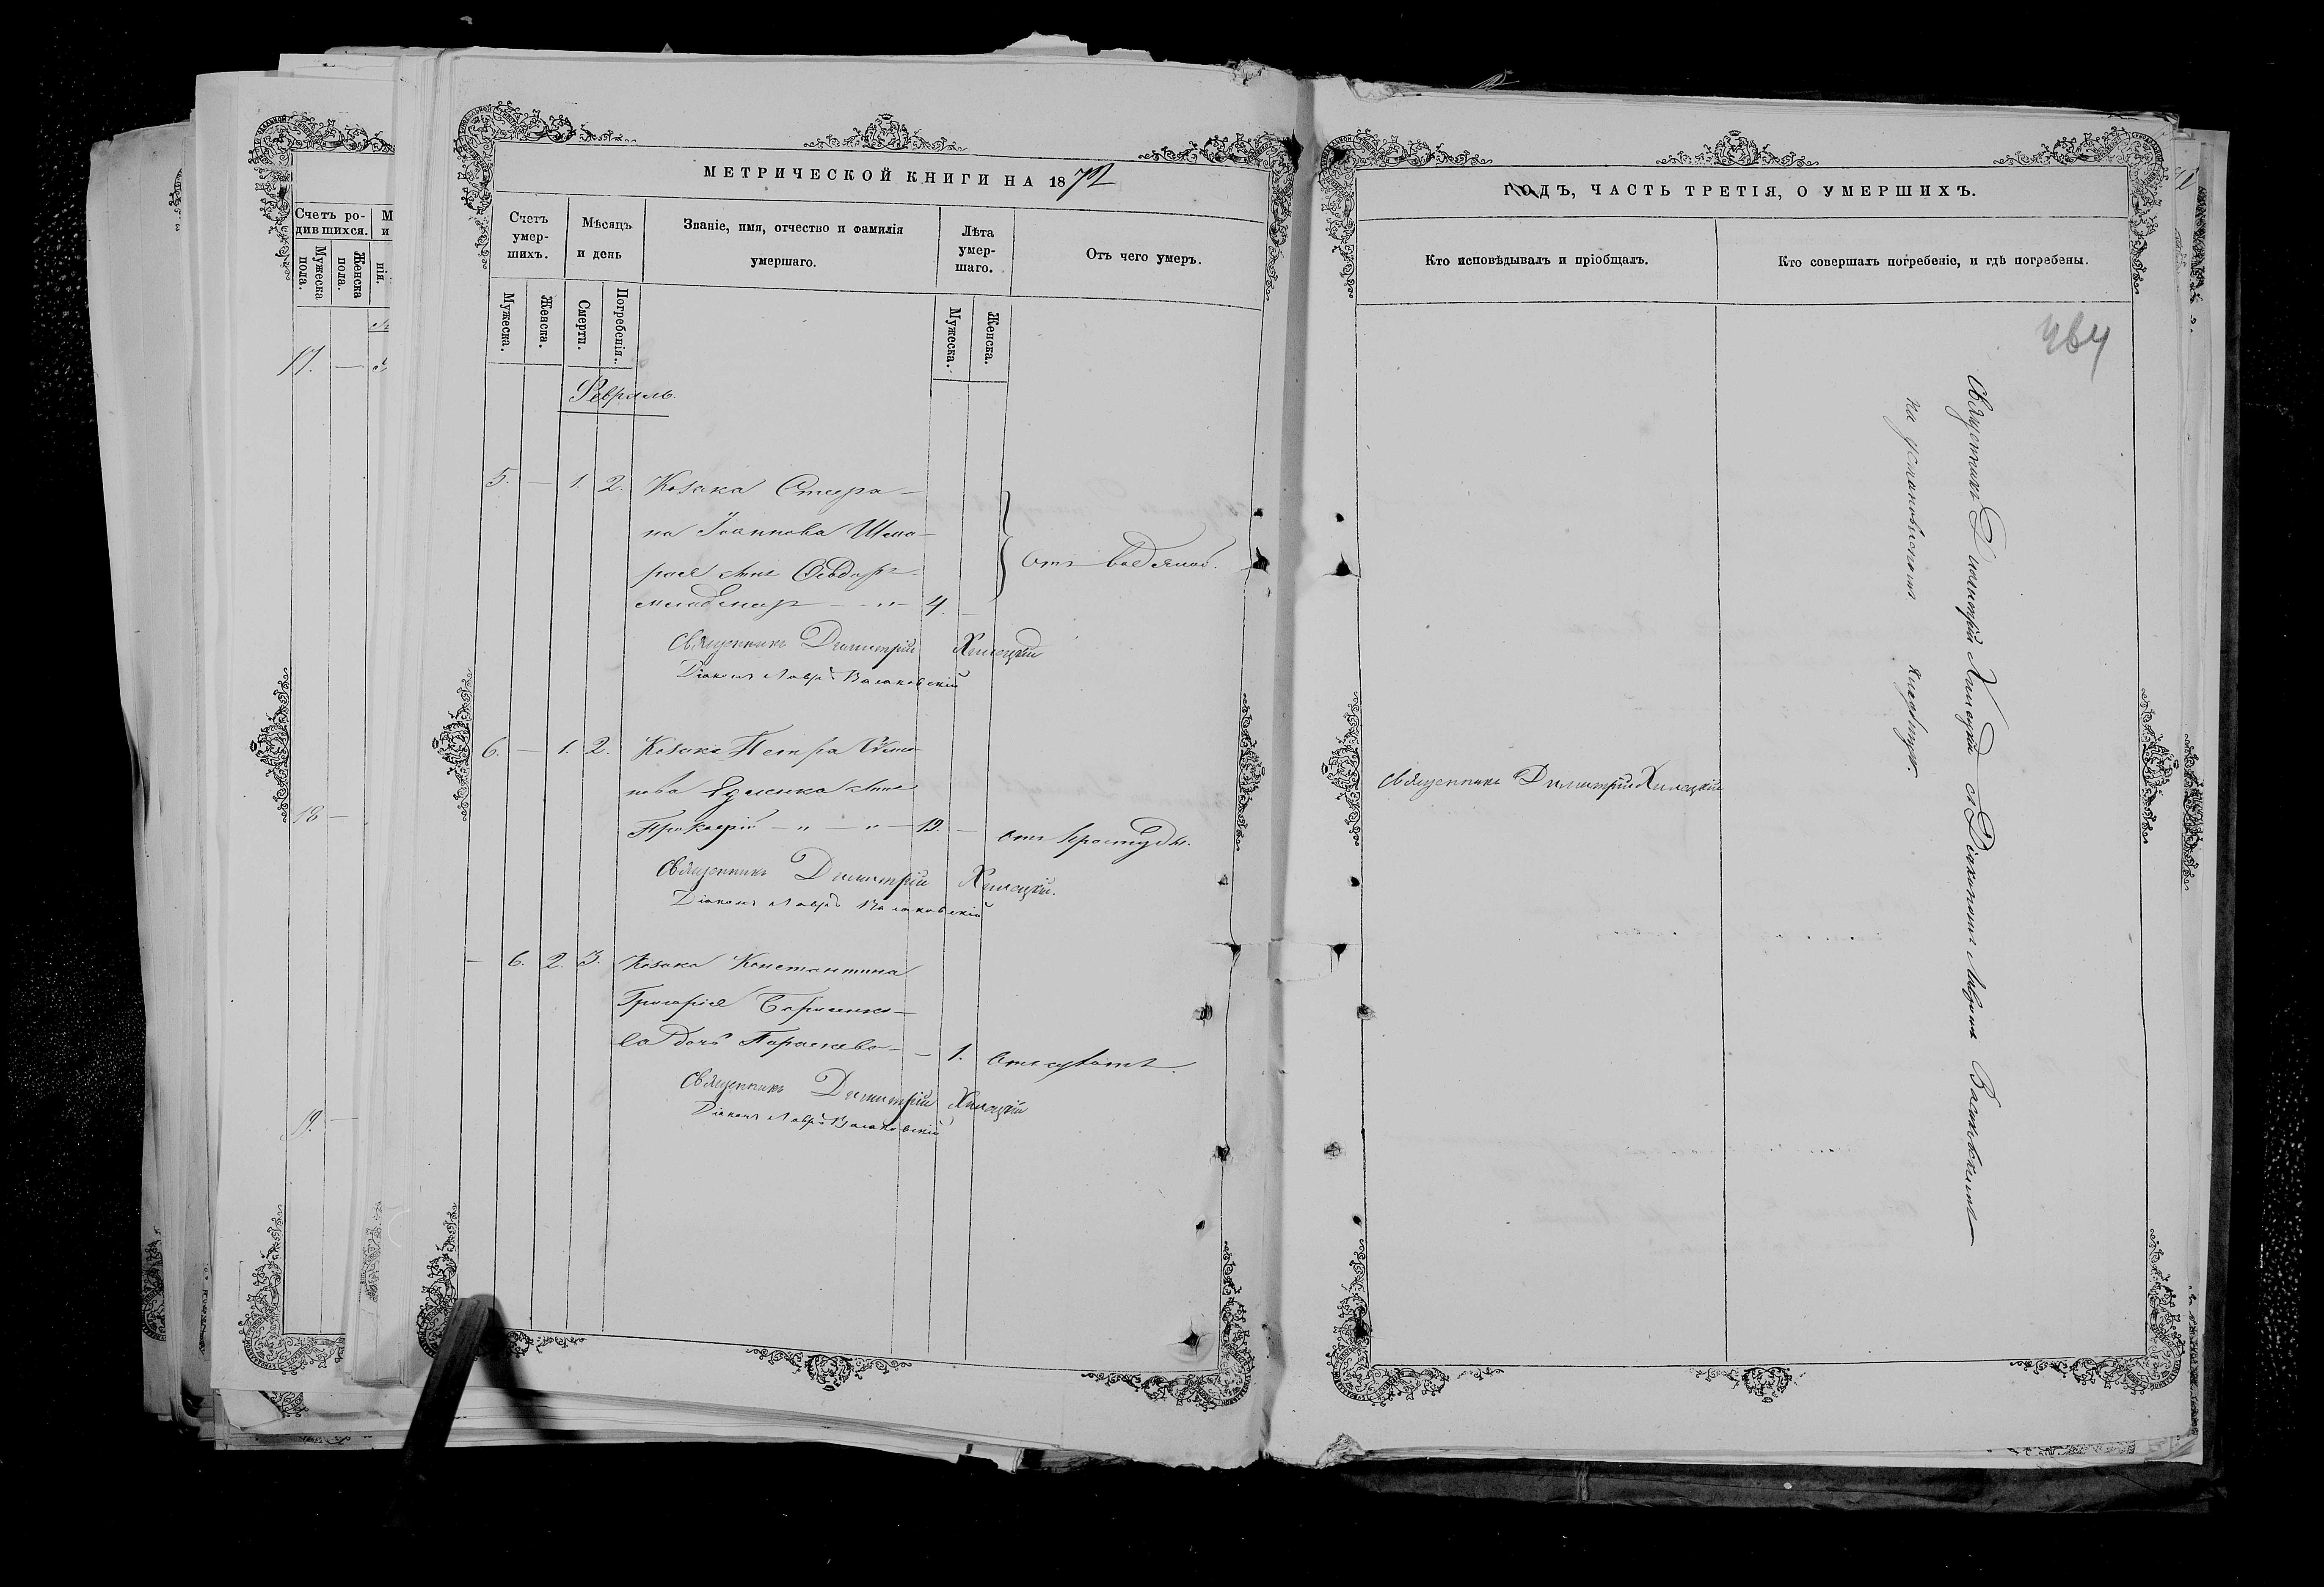 Счетъ ро-
дившихся.
Мужеска
пола.
Женска
пола.
М
и
нія.
17. —
18 —
9. —
МЕТРИЧЕСКОЙ КНИГИ НА 1872
Счетъ
умер-
шихъ.
Мѣсяцъ
и день
Званіе, имя, отчество и фамилія
умершаго.
Лѣта
умер-
шаго.
Отъ чего умеръ.
Мужеска.
Женска.
Смерти.
Погребенія.
Мужеска.
Женска.
Февраль.
5. — 1. 2. Козака Стефа-
на Іоаннова
сынъ Ѳеодоръ
младенецъ — „ — 4. — отъ водяной.
Священникъ Димитрій Хилецкій
Діаконъ Лавръ
6. — 1. 2. Козака Петра
нова сынъ
Прокопій — „ — „ — 19. — отъ простуды.
Священникъ Димитрій Хилецкій.
Діаконъ Лавръ
— 6. 2. 3. Козака Константина
Григорія Борисенко-
ва дочь Параскева — — 1.
Священникъ Димитрій Хилецкій
Діаконъ Лавръ
ГОДЪ, ЧАСТЬ ТРЕТІЯ, О УМЕРШИХЪ.
Кто исповѣдывалъ и пріобщалъ.
Кто совершалъ погребеніе, и гдѣ погребены.
464
Священникъ Димитрій Хилецкій
Священникъ Димитрій Хилецкій съ Діакономъ Лавромъ
на установленномъ кладбищѣ.